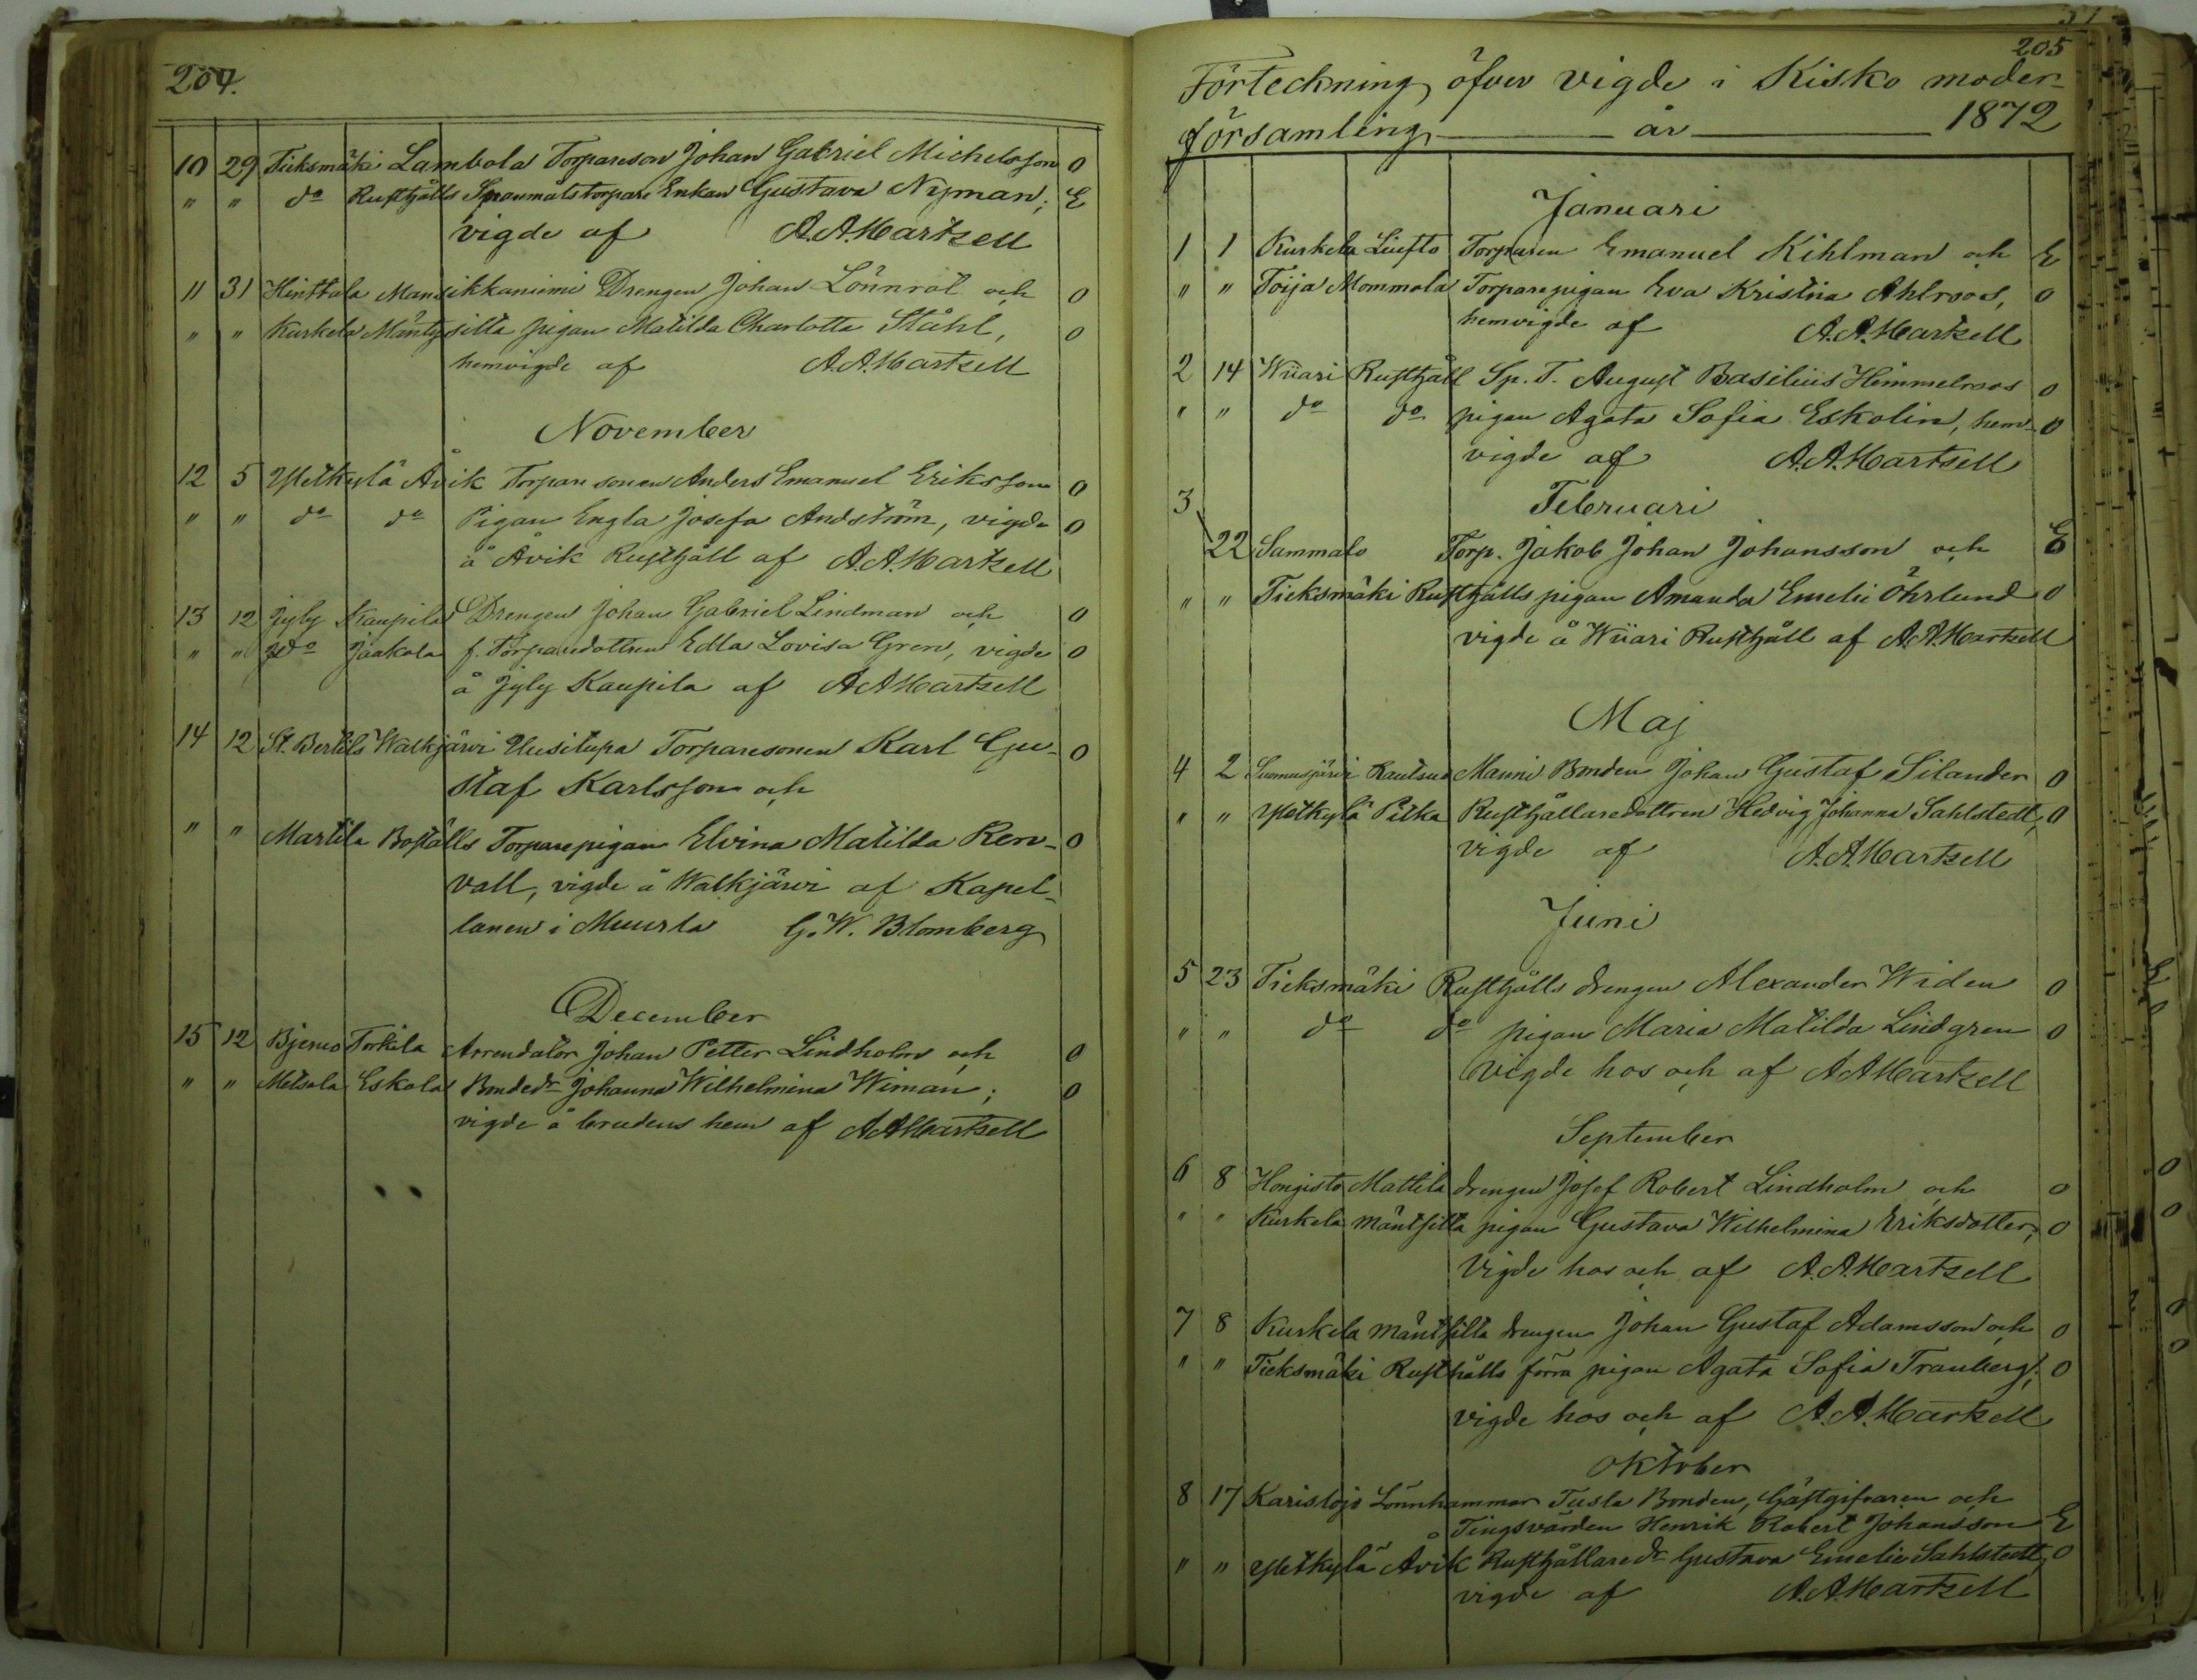 204.
10 29 Tieksmäki Lambola Torpareson Johan Gabriel Michelsson O
" " do Rusthålls Spanmålstorpare Enkan Gustava Nyman; E
vigde af A.A.Hartzell
11 31 Hinttala Mansikkaniemi Drengen Johan Lönnrot och O
" " Kurkela Mäntysilta pigan Matilda Charlotta Ståhl, O
hemvigde af A.A.Hartzell
November
12 5 Yletkylä Åvik Torparesonen Anders Emanuel Eriksson O
" " do do Pigan Engla Josefa Andström, vigde O
å Åvik Rusthåll af A.A.Hartzell
13 12 Jyly Kaupila Drengen Johan Gabriel Lindman och O
" " do Jaakola f. Torparedottren Edla Lovisa Gren, vigde O
å Jyly Kaupila af A A Hartzell
14 12 St. Bertils Walkjärvi Uusitupa Torparesonen Karl Gu- O
staf Karlsson och
" " Martila Boställs Torparepigan Elvina Matilda Ren- O
vall, vigde å Walkjärvi af Kapel-
lanen i Muurla G.W. Blomberg
December
15 12 Bjerno Torkila Arrendator Johan Petter Lindholm och O
" " Metsola Eskola Bondedr Johanna Wilhelmina Wiman; O
vigde å brudens hem af A A Hartzell
205
Förteckning öfver vigde i Kisko moder-
församling år 1872
Januari
1 1 Kurkela Liufto Torparen Emanuel Kihlman och E
" " Toija Mommola Torparepigan Eva Kristina Ahlroos, O
hemvigde af A.A.Hartzell
2 14 Wiiari Rusthåll Sp. T. August Basilius Himmelroos O
" " do do pigan Agata Sofia Eskolin, hem- O
vigde af A.A.Hartzell
3 Februari
22 Sammalo Torp. Jakob Johan Johansson och E
" " Tieksmäki Rusthålls pigan Amanda Emelie Öhrlund O
vigde å Wiiari Rusthåll af A.A.Hartzell
Maj
4 2 Suomusjärvi Rautsuo Manni Bonden Johan Gustaf Silander O
" " Yletkylä Pitka Rusthållaredottren Hedvig Johanna Sahlstedt, O
vigde af A.A.Hartzell
Juni
5 23 Tieksmäki Rusthålls drengen Alexander Widen O
" " do do pigan Maria Matilda Lindgren O
vigde hos och af A A Hartzell
September
6 8 Hongisto Mattila drengen Josef Robert Lindholm och O
" " Kurkela Mäntsilta pigan Gustava Wilhelmina Eriksdotter, O
Vigde hos och af A.A.Hartzell
7 8 Kurkela Mäntsilta drengen Johan Gustaf Adamsson och O
" " Tieksmäki Rusthålls förra pigan Agata Sofia Tranberg; O
vigde hos och af A.A.Hartzell
Oktober
8 17 Karislojo Lönnhammar Tusla Bonden, Gästgifvaren och
Tingsvärden Henrik Robert Johansson E
" " Yletkylä Åvik Rusthållaredr Gustava Emelie Sahlstedt, O
vigde af A.A.Hartzell